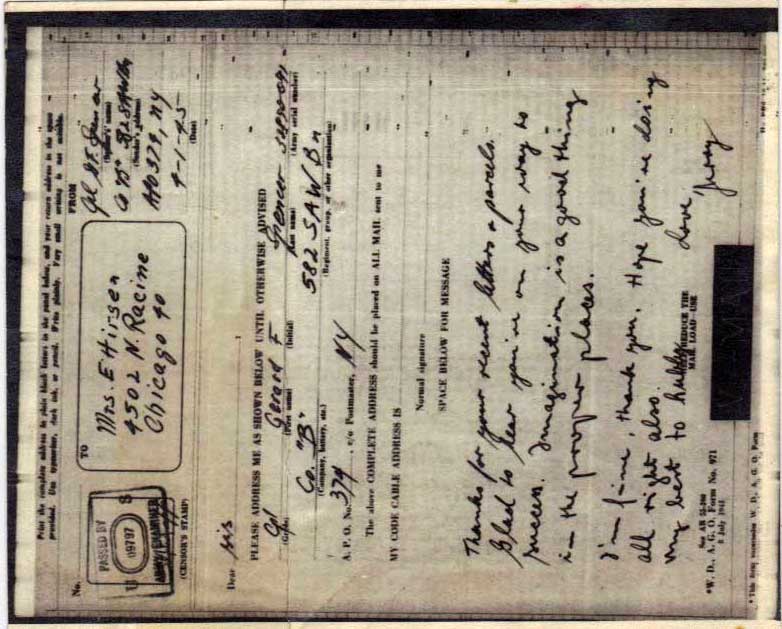 Print the complete address in plain block letters in the panel below, and your return address in the space
provided. Use typewriter, dark ink, or pencil. Write plainly. Very small writing is not suitable.
No.
PASSED BY
U S
09797
ARMY EXAMINER
(CENSOR'S STAMP)
TO
Mrs. E Hirsen
4502 N. Racine
Chicago 40
FROM
G. F. Spencer
(Sender's name)
Co "B" 582 SAWBn
(Sender's address)
APO 374, NY
4-1-45
(Date)
Dear sis
PLEASE ADDRESS ME AS SHOWN BELOW UNTIL OTHERWISE ADVISED
Gerard F Spencer
(Grade) (First name) (Initial) (Last name) (Army serial number)
Co. "B" 582 SAW Bn
(Company, battery, etc.) (Regiment, group, or other organization)
A. P. O. No. 374, c/o Postmaster, NY
The above COMPLETE ADDRESS should be placed on ALL MAIL sent to me
MY CODE CABLE ADDRESS IS
Normal signature
SPACE BELOW FOR MESSAGE
Thanks for your recent letters & parcels.
Glad to hear you're on your way to
success. Imagination is a good thing
in the proper places.
I'm fine, thank you. Hope you're doing
all right also.
my best to hubby
Love Jerry
See AR
W. D., A. G. O. Form No. 971
REDUCE THE
MAIL LOAD—USE
V-MAIL
* This form supersedes W. D., A. G. O. Form